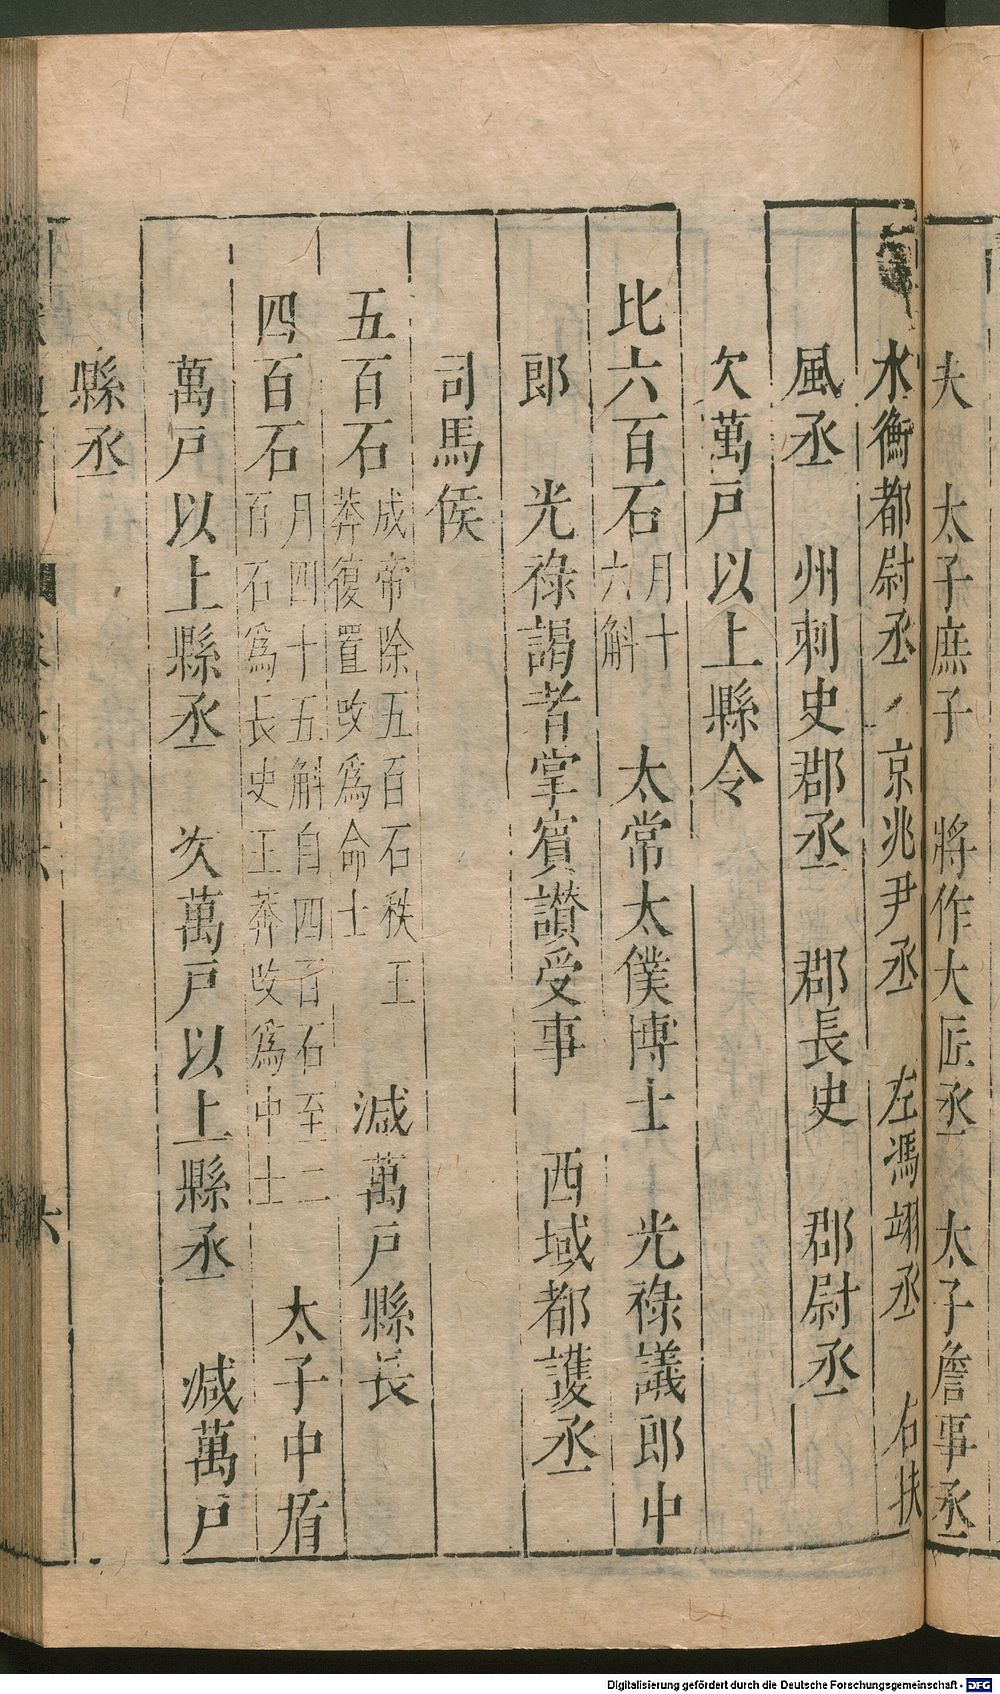 夫　太子庶子　將作大匠丞　太子詹事丞
水衡都尉丞　京兆尹丞　左馮翊丞　右扶
風丞　州刺史郡丞　郡長史　郡尉丞
欠萬戸以上縣令
比六百石月十六斛　太常太僕博士　光祿議郎中
郎　光祿謁者掌賓讃受事　西域都護丞
司馬侯
五百石成帝除五百石秩王莽復置改爲命士　減萬戸縣長
四百石月四十五斛自四百石至二百石爲長史王莽改爲中士　太子中盾
萬戸以上縣丞　次萬戸以上縣丞　減萬戸
縣丞
六
Digitalisierung gefördert durch die Deutsche Forschungsgemeinschaft - DFG